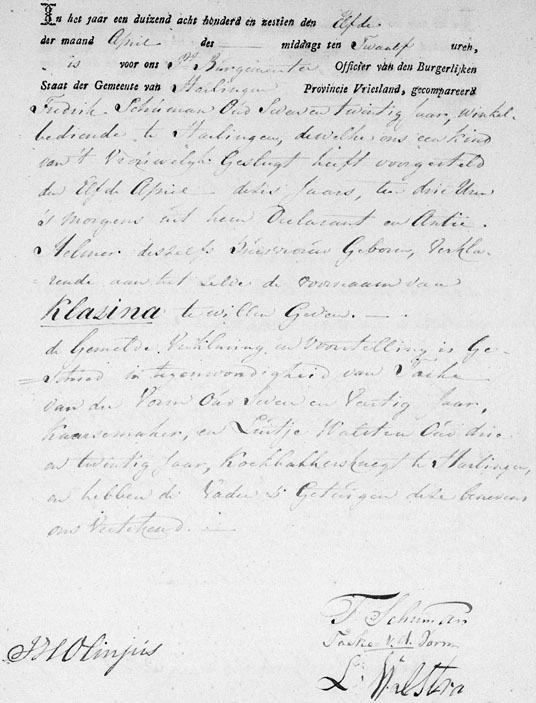 In het jaar een duizend acht honderd en zestien den Elfde
der maand April des — middags ten Twaalf uren,
is voor ons Burgemeester Officier van den Burgerlijken
Staat der Gemeente van Harlingen Provincie Vriesland, gecompareerd
Fredrik Schuman Oud Seven en twintig Jaar, Winkel-
bediende te Harlingen, dewelke ons een kind
van 't Vrouwelijk Geslagt heeft voorgesteld
den Elfde April dezes Jaars, ten drie Uren
's morgens uit hem Declarant en Antie
Helmer deszelfs Huisvrouw Geboren, Verkla-
rende aan het zelve de voornaam van
Klasina te willen Geven. —
de Gemelde Verklaring en Voorstelling is Ge-
schied in tegenwoordigheid van Taeke
van der Dorm Oud Seven en Veertig Jaar,
Kaarsemaker, en Luitje Walstra Oud drie
en twintig Jaar, Koekbakkersknegt te Harlingen,
en hebben de Vader & Getuigen deze benevens
ons Getekend. —
F Schuman
Taeke v.d. Dorm
L: Walstra